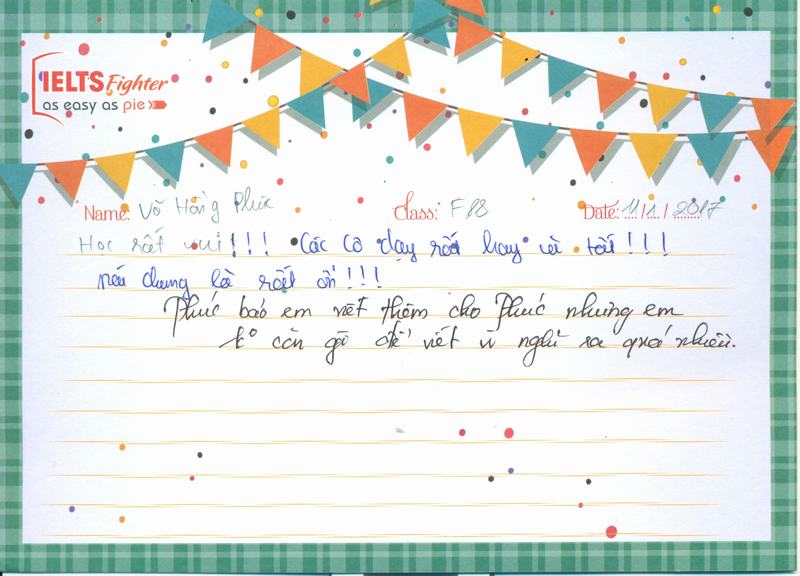 IELTS Fighter
as easy as pie
Name: Võ Hồng Phúc Class: F88 Date: 11/1/2017
Học rất vui!!! Các cô dạy rất hay và tốt!!!
nói chung là rất ổn!!!
Phúc bảo em viết thêm cho Phúc nhưng em
ko còn gì để viết vì nghỉ ra quá nhiều.